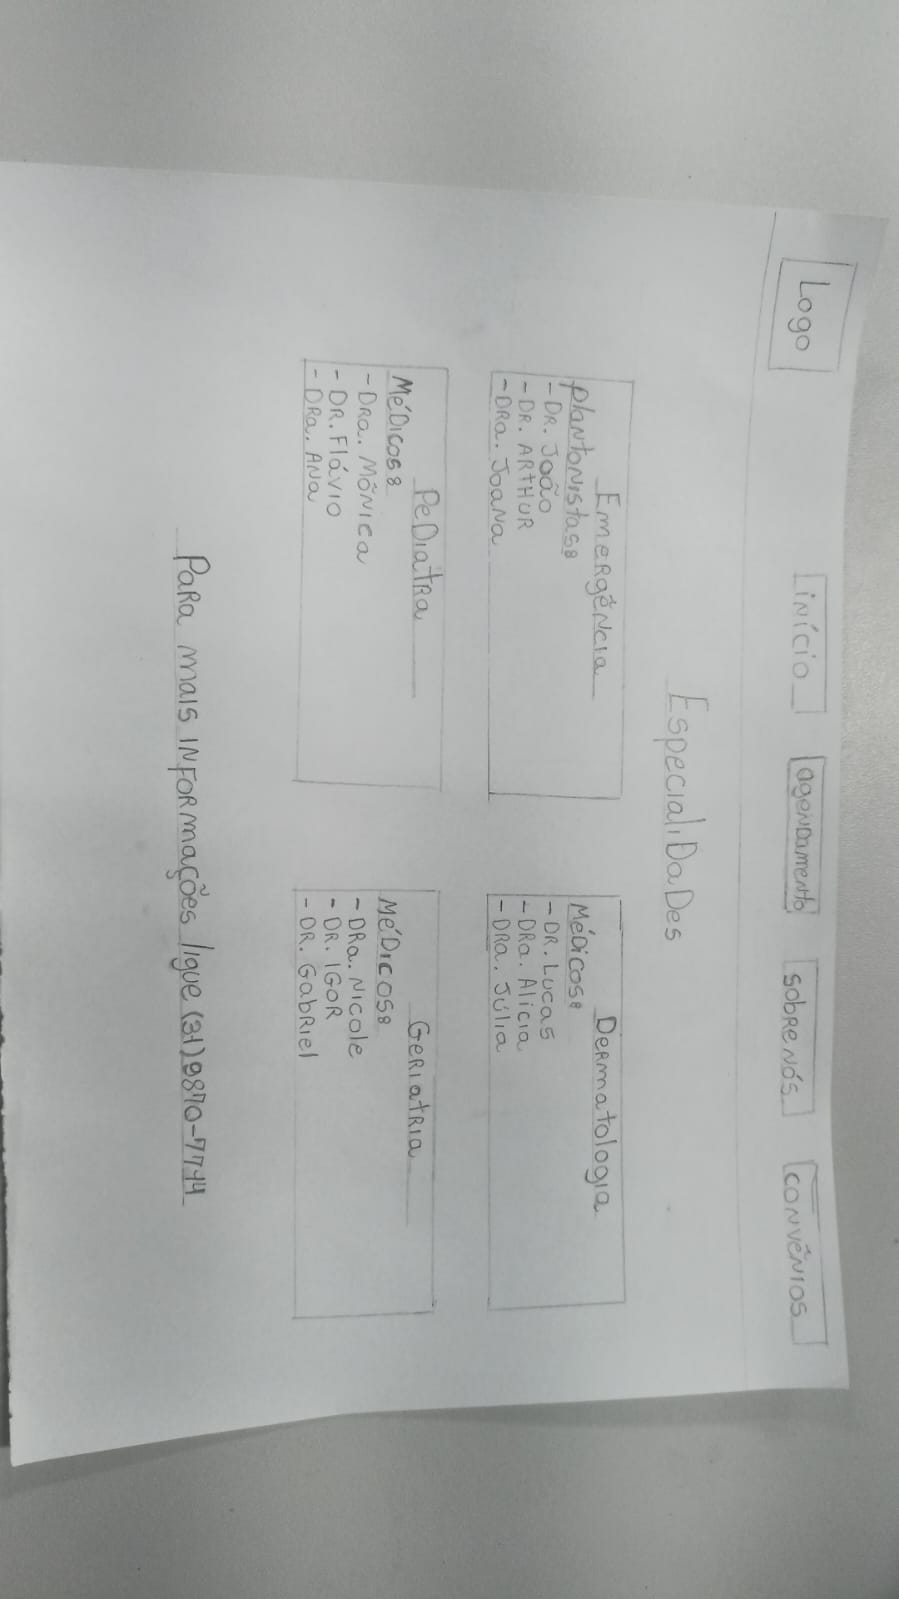 Logo
início
agendamento
sobre nós
convênios
Especialidades
Emergência
Plantonistas:
- DR. João
- DR. ARTHUR
- DRa. Joana
Dermatologia
Médicos:
- DR. Lucas
- DRa. Alicia
- DRa. Júlia
PeDiatRa
Médicos:
- DRa. Mônica
- DR. Flávio
- DRa. Ana
GeRiatRia
Médicos:
- DRa. Nicole
- DR. IGOR
- DR. GabRiel
PaRa mais informações ligue (31)9870-7744